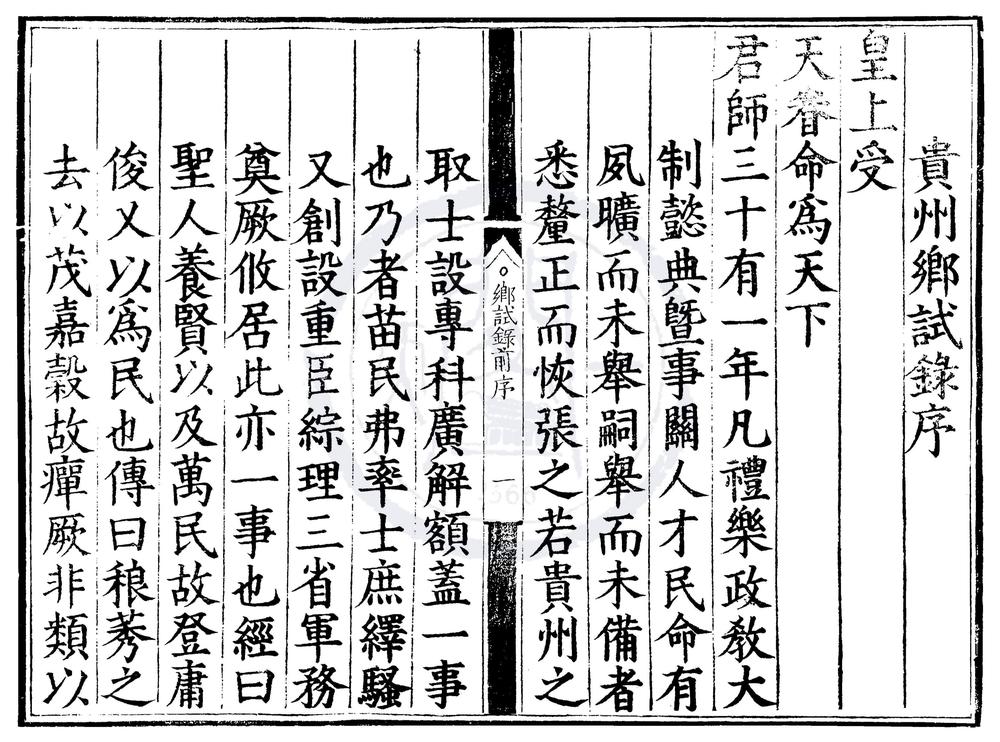 貴州鄉試錄序
皇上受
天眷命爲天下
君師三十有一年凡禮樂政教大
制懿典曁事關人才民命有
夙曠而未舉嗣舉而未備者
悉釐正而恢張之若貴州之
鄉試錄前序 一
取士設專科廣解額蓋一事
也乃者苗民弗率士庶繹騷
又創設重臣綜理三省軍務
奠厥攸居此亦一事也經曰
聖人養賢以及萬民故登庸
俊乂以爲民也傳曰稂莠之
去以茂嘉穀故癉厥非類以